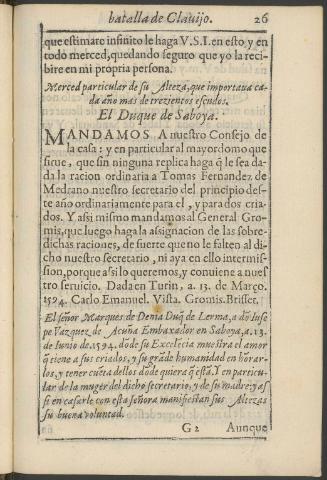 batalla de Clauijo. 26
que estimare infinito le haga V.S.I. en esto, y en
todo merced, quedando seguro que yo la reci-
bire en mi propria persona.
Merced particular de su Alteza, que importaua ca-
da año mas de trezientos escudos.
El Duque de Saboya.
MANDAMOS A nuestro Consejo de
la casa: y en particular al mayordomo que
sirue, que sin ninguna replica haga q̃ le sea da-
da la racion ordinaria a Tomas Fernandez de
Medrano nuestro secretario del principio des-
te año ordinariamente para el, y para dos cria-
dos. Y assi mismo mandamos al General Gro-
mis, que luego haga la assignacion de las sobre-
dichas raciones, de suerte que no le falten al di-
cho nuestro secretario, ni aya en ello intermis-
sion, porque assi lo queremos, y conuiene a nues
tro seruicio. Dada en Turin, a. 13. de Março.
1594. Carlo Emanuel. Vista. Gromis. Brisset.
El señor Marques de Denia Duq̃ de Lerma, a dõ Iuse
pe Vazquez de Acuña Embaxador en Saboya, a. 13.
de Iunio de. 1594. dõde su Excelẽcia muestra el amor
q̃ tiene a sus criados, y su grãde humanidad en horar-
los, y tener cuẽta dellos dõde quiera q̃ estã. Y en particu-
lar de la muger del dicho secretario, y de su madre: y a
si en casarle con esta señora manifiestan sus Altezas
su buena voluntad.
G 2 Aunque